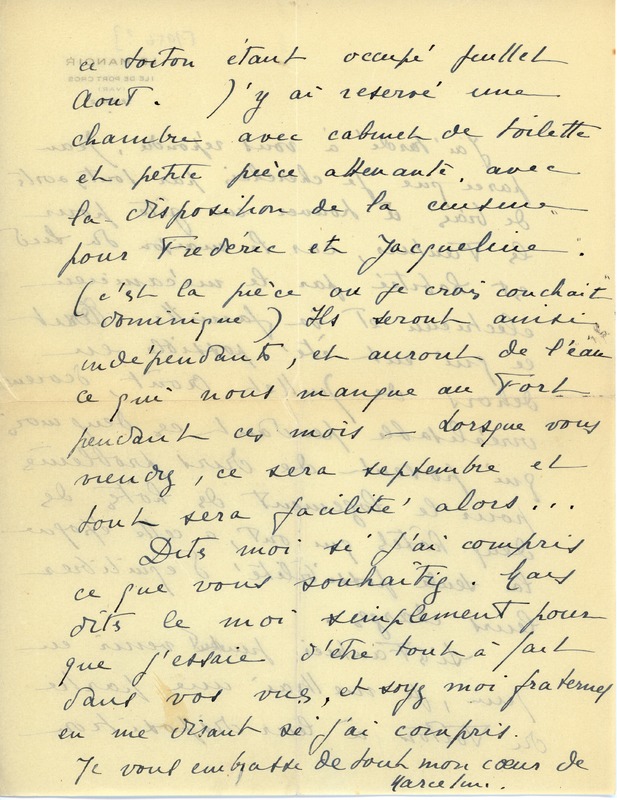 ce toiton étant occupé juillet
Aout. J'y ai reservé une
chambre avec cabinet de toilette
et petite pièce attenante, avec
la disposition de la cuisine
pour Frédéric et Jacqueline.
(c'est la pièce ou je crois couchait
dominique) Ils seront ainsi
indépendants, et auront de l'eau
ce qui nous manque au Fort
pendant ces mois — Lorsque vous
viendrez, ce sera septembre et
tout sera facilité alors...
Dites moi si j'ai compris
ce que vous souhaitiez. Mais
dites le moi simplement pour
que j'essaie d'être tout à fait
dans vos vues, et soyez moi fraternel
en me disant si j'ai compris.
Je vous embrasse de tout mon cœur de
Marceline.